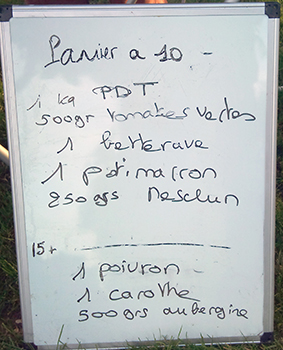 Panier a 10.-
1 kg PDT
500gr tomates vertes
1 betterave
1 potimarron
250grs Mesclun
15.-
1 poivron
1 carotte
500grs aubergine